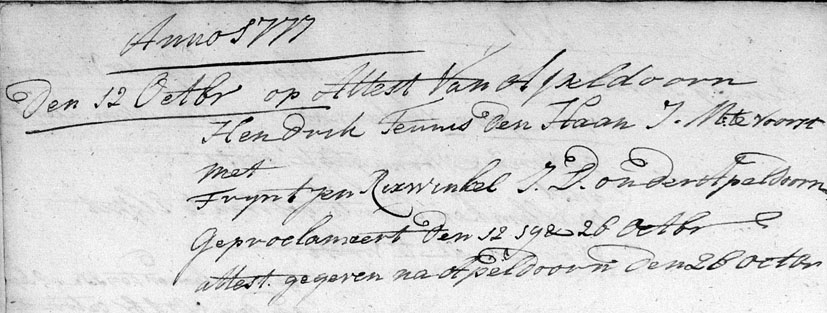 Anno 1777
Den 12 Octbr op Attest Van Apeldoorn
Hendrik Teunis den Haan J. M. te Voorst
met
Tryntjen Rixwinkel J. D. onder Apeldoorn
Geproclameert den 12 19 & 26 Octbr
attest. gegeven na Apeldoorn den 26 Octbr